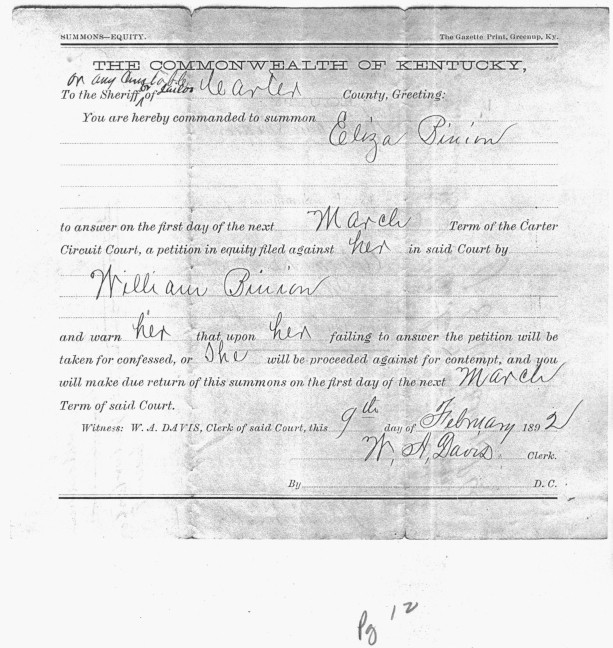 SUMMONS—EQUITY. The Gazette Print, Greenup, Ky.
THE COMMONWEALTH OF KENTUCKY,
or any Constable
or Jailor
To the Sheriff of Carter County, Greeting:
You are hereby commanded to summon Eliza Binion
to answer on the first day of the next March Term of the Carter
Circuit Court, a petition in equity filed against her in said Court by
William Binion
and warn her that upon her failing to answer the petition will be
taken for confessed, or She will be proceeded against for contempt, and you
will make due return of this summons on the first day of the next March
Term of said Court.
Witness: W. A. DAVIS, Clerk of said Court, this 9th day of February 1892
W. A. Davis Clerk.
By D. C.
Pg 12